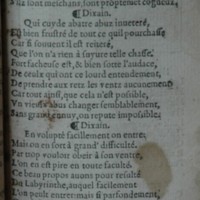 Dizain.
Qui cuyde abatre abuz inueteré,
bien frustré de tout ce quil pourchasse
Car si souuent il est reiteré,
Que l'on n'a rien à suyure telle chasse.
Fort facheuse est, & bien sotte l'audace,
De ceulx qui ont ce lourd entendement,
De prendre aux retz les ventz aucunement
Car tout ainsi, que cela n'est possible,
Vn vieux changer semblablement,
Sans grand ennuy, on repute impossible.
Dixain.
En volupté facilement on entre,
Mais on en sort à grand' difficulté.
Par trop vouloir obeir à son ventre,
L'on en est pire en toute faculté.
Ce beau propos auons pour resulté
Du Labyrinthe, auquel facilement
L'on peult entrer: mais si parfondement,